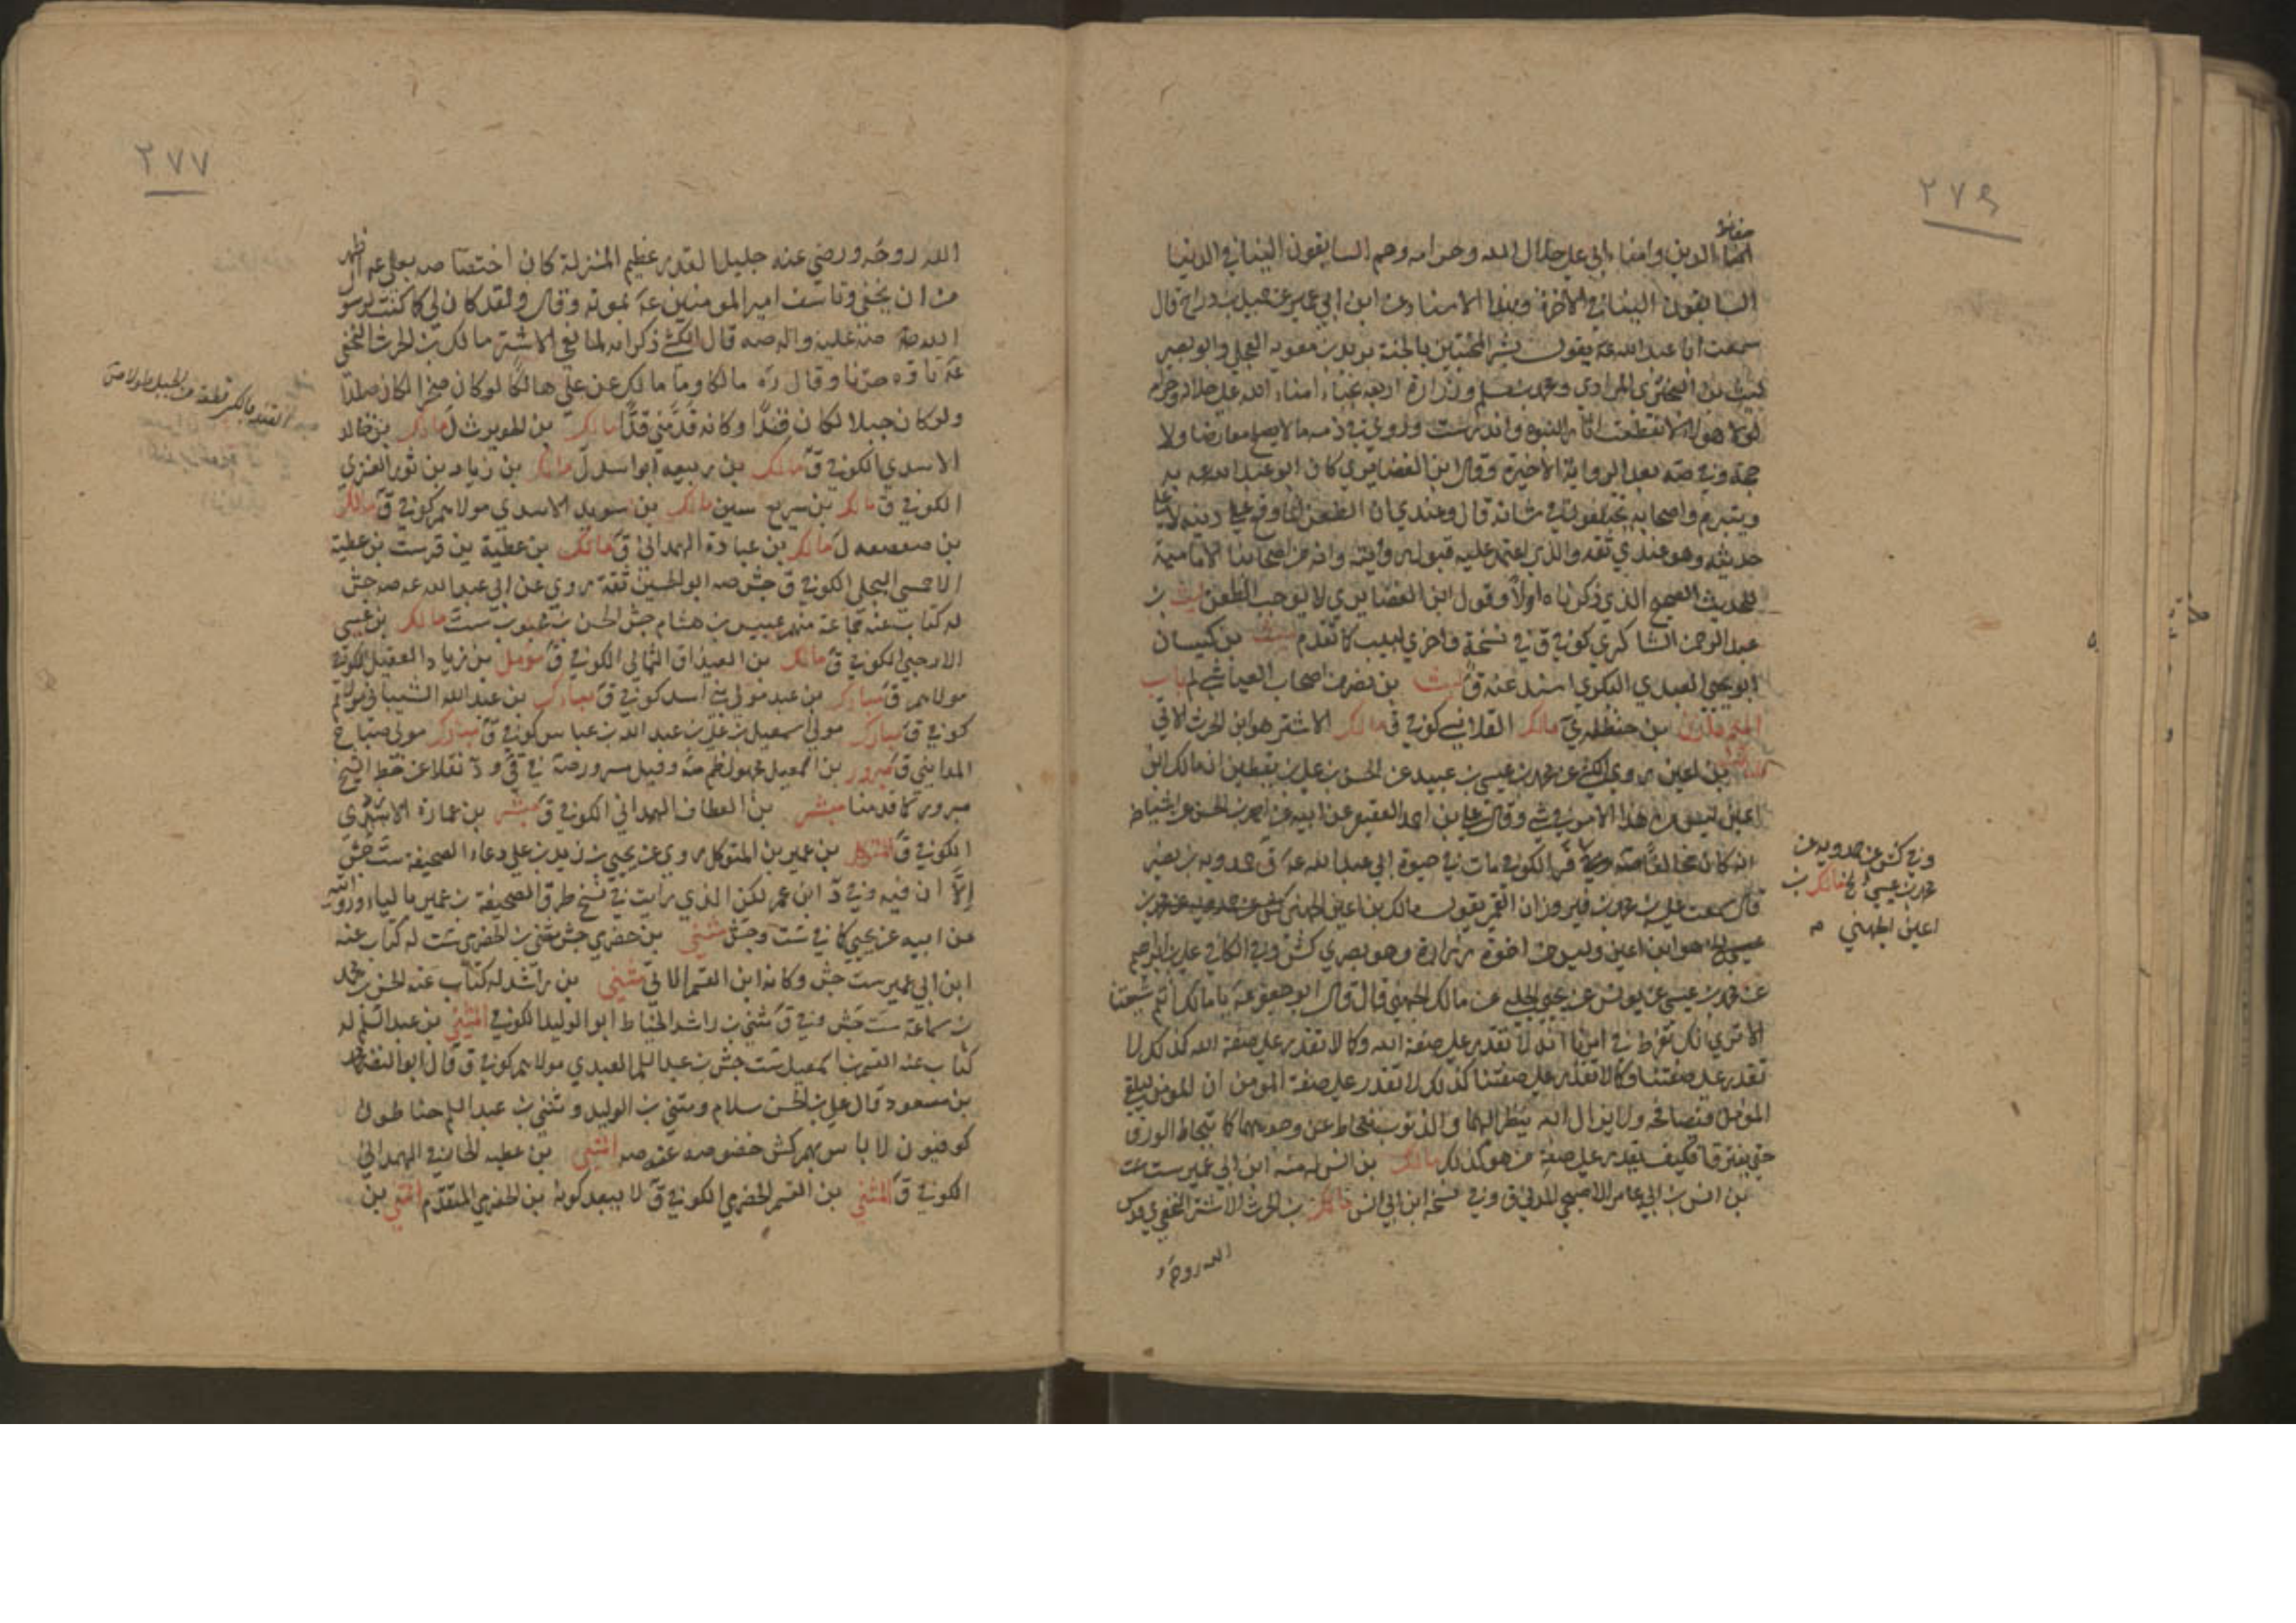 ٢٧٦
حفاظ
امناء الدين وامناء ابي على حلال الله وحرامه وهم السابقون الينا في الدنيا
السابقون الينا في الآخرة وبهذا الاسناد عن ابن ابي عمير عن جميل بن دراج قال
سمعت ابا عبد الله عه يقول بشر المخبتين بالجنة بريد بن معوية العجلي وابو بصير
ليث بن البختري المرادي ومحمد بن مسلم وزرارة اربعة نجباء امناء الله على حلاله وحرامه
لولا هؤلاء لانقطعت اثار النبوة واندرست وروي في ذمه ما لا يصلح معارضا ولا
حجة وفي صه بعد الرواية الاخيرة وقال ابن الغضايري كان ابو عبد الله عه
ويتبرم واصحابه يختلفون في شانه قال وعندي ان الطعن انما وقع على دينه لا على
حديثه وهو عندي ثقه والذي اعتمد عليه قبول روايته وانه من اصحابنا الامامية
للحديث الصحيح الذي ذكرناه اولا وقول ابن الغضايري لا يوجب الطعن ليث بن
عبد الرحمن الشاكري كوفي ق في نسخة واخرى لبيب كما تقدم ليث بن كيسان
ابو يحيى العبدي البكري اسند عنه ق ليث بن نصر من اصحاب العياشي لم باب
الميم بن حنظلة ي مالك القلانسي كوفي ق مالك الاشتر هو ابن الحرث الاتي
بن اعين روى الكشي عن محمد بن عيسى بن عبيد عن الحسن بن علي بن يقطين ان مالك ابن
اعين ليس من هذا الامر في شيء وقال علي بن احمد العقيقي عن ابيه عن احمد بن الحسن عن اشياخه
انه كان مخالفا صه الكوفي مات في حيوة ابي عبد الله عه ق حمدويه بن نصير
قال سمعت علي بن محمد بن فيروزان القمي يقول مالك بن اعين الجهني
هو ابن اعين وليس من اخوة زرارة وهو بصري كش وفي الكافي علي بن ابرهيم
عن محمد بن عيسى عن يونس عن يحيى الحلبي عن مالك الجهني قال قال ابو جعفر عه يا مالك انتم شيعتنا
الا ترى انك تفرط في امرنا انه لا تقدر على صفة الله وكما لا تقدر على صفة الله كذلك لا
تقدر على صفتنا وكما لا تقدر على صفتنا كذلك لا تقدر على صفة المؤمن ان المؤمن ليلقى
المؤمن فيصافحه ولا يزال الله ينظر اليهما والذنوب تتحات عن وجوههما كما يتحات الورق
حتى يفترقا فكيف يقدر على صفة من هو كذلك مالك بن انس له عنه ابن ابي عمير ست
بن انس بن ابي عامر الاصبحي المدني ق وفي نسخة ابن ابي انس مالك بن الحرث الاشتر النخعي ي قدس
الله روحه و
وفي كش عن حمدويه عن
محمد بن عيسى الخ مالك بن
اعين الجهني
٢٧٧
الله روحه ورضي عنه جليل القدر عظيم المنزلة كان اختصاصه بعلي عه اظهر
من ان يخفى وتاسف امير المؤمنين عه بموته وقال ولقد كان لي كما كنت لرسول
الله صه قال الكشي ذكر انه لما نعي الاشتر مالك بن الحرث النخعي
عه تاوه حزنا وقال ره مالكا وما مالك عز علي هالكا لو كان صخرا لكان صلدا
ولو كان جبلا لكان فندا وكانه قد مني قدا مالك بن الحويرث ل مالك بن خالد
الاسدي الكوفي ق مالك بن ربيعه ابو اسيد ل مالك بن زياد بن ثور العنزي
الكوفي ق مالك بن سريع سين مالك بن سويد الاسدي مولاهم كوفي ق مالك
بن صعصعه ل مالك بن عبادة الهمداني ق مالك بن عطية ين قر ست بن عطية
الاحمسي البجلي الكوفي ق جش صه ابو الحسين ثقة روى عن ابي عبد الله عه صه جش
له كتاب عنه جماعة منهم عبيس بن هشام جش الحسن بن محبوب ست مالك بن عيسى
الارحبي الكوفي ق مالك بن الصيداق الثمالي الكوفي ق مؤمل بن زياد العقيلي الكوفي
مولاهم ق مبارك بن عبد مولى بني اسد كوفي ق مبارك بن عبد الله الشيباني مولاهم
كوفي ق مبارك مولى اسمعيل بن علي بن عبد الله بن عباس كوفي ق مبارك مولى صباح
المدايني ق مبرور بن اسمعيل مجهول ظم صه وقيل مسرور صه في ق و د نقلا عن خط الشيخ
مبرور كما قدمنا مبشر بن العطاف الهمداني الكوفي ق مبشر بن عمارة
الكوفي ق المتوكل بن عمير بن المتوكل روى عن يحيى بن زيد بن علي دعاء الصحيفة ست جش
الا ان فيه وفي د ابن عمر لكن الذي رايت في نسخ طرق الصحيفة بن عمير بالياء وروايته
عن ابيه عن يحيى كما في ست وجش مثنى بن حضرمي جش مثنى بن الحضرمي ست له كتاب عنه
ابن ابي عمير ست جش وكانه ابن القسم الاتي مثنى بن راشد له كتاب عنه الحسن بن محمد
بن سماعة ست جش وفي ق مثنى بن راشد الحناط ابو الوليد الكوفي المثنى بن عبد السلم له
كتاب عنه القسم بن اسمعيل ست جش بن عبد السلم العبدي مولاهم كوفي ق قال ابو النضر محمد
بن مسعود قال علي بن الحسن سلام ومثنى بن الوليد ومثنى بن عبد السلم حناطون
كوفيون لا باس بهم كش خصوصه عنه صه المثنى بن عطيه الهمداني
الكوفي ق المثنى بن القسم الحضرمي الكوفي ق لا يبعد كونه بن الحضرمي المتقدم المثنى بن
الفند بالكسر قطعة من الجبل طولا ص